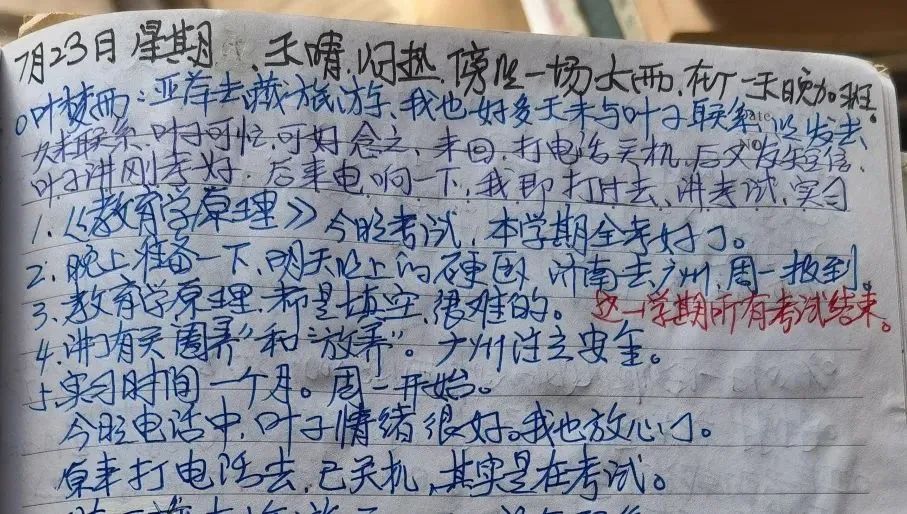 7月23日 星期 、天晴.闷热.傍晚一场大雨.在厂一天晚加班.
○叶梦雨:亚萍去藏旅游.我也好多天未与叶子联系.
未联系.叶子可忙.可好 念之.来回.打电话关机.后又发短信,
叶子讲刚考好.后来电响一下.我即打过去.讲考试.实习
1.《教育学原理》今晚考试.本学期全考好了。
2.晚上准备一下.明天晚上的 济南去广州.周一报到.
3.教育学原理.都是填空.很难的。 这一学期所有考试结束。
4.讲了有关“圈养”和“放养”。广州注意安全。
5.实习时间一个月。周一开始。
今晚电话中,叶子情绪很好.我也放心了。
原来打电话去,已关机,其实是在考试。